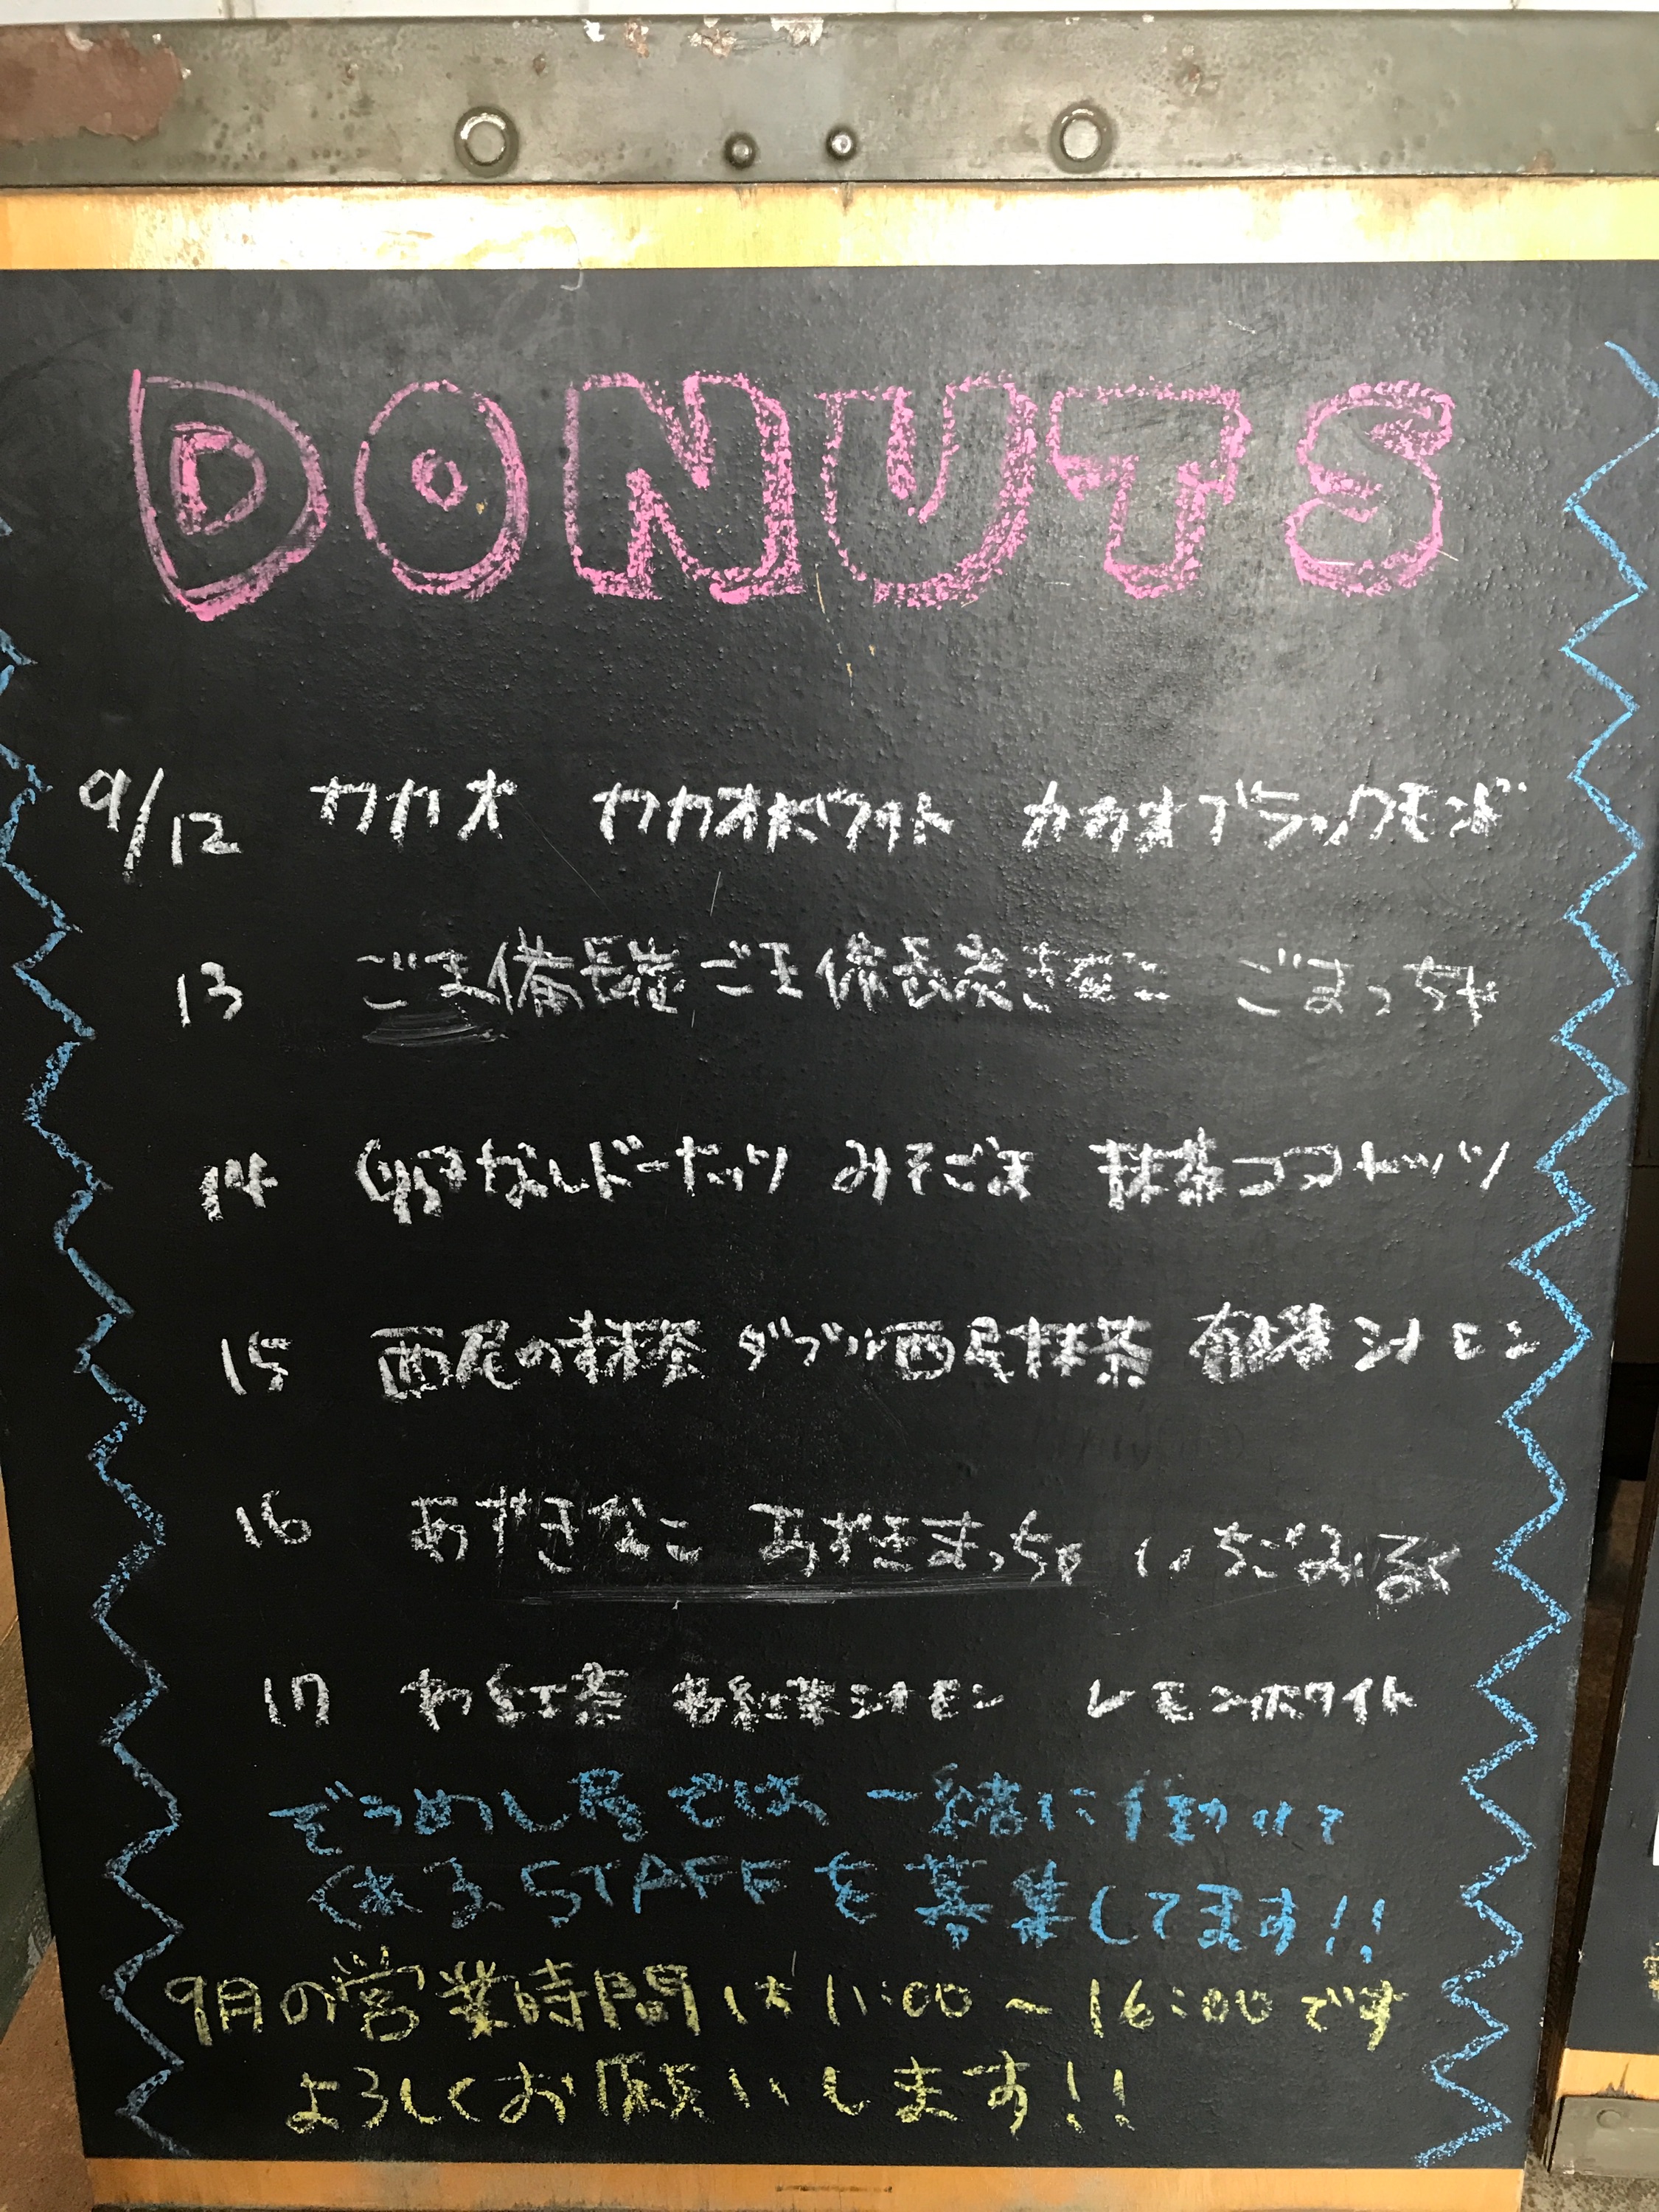 DONUTS
9/12 カカオ カカオホワイト カカオブラックモンド
13 ごま備長炭 ごま備長炭きなこ ごまっちゃ
14 卵なしドーナッツ みそごま 抹茶ココナッツ
15 西尾の抹茶 ダブル西尾抹茶 シナモン
16 あずきなこ あずきまっちゃ いちごみるく
17 わ紅茶 わ紅茶シナモン レモンホワイト
ぞうめし屋では 一緒に働いて
くれるSTAFFを募集してます!!
9月の営業時間は11:00〜16:00です
よろしくお願いします!!